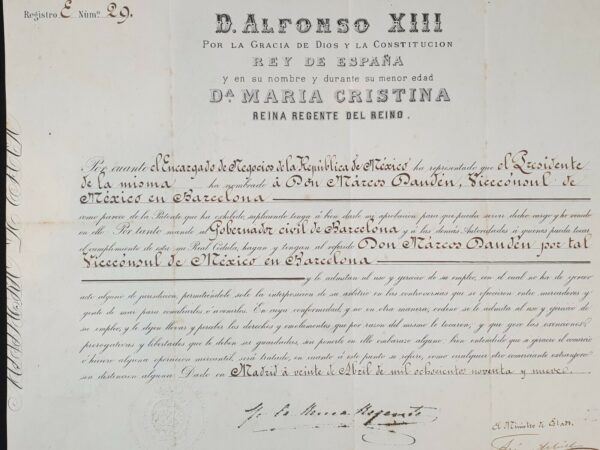 Registro E Núm.º 29.
D. ALFONSO XIII
POR LA GRACIA DE DIOS Y LA CONSTITUCION
REY DE ESPAÑA
y en su nombre y durante su menor edad
D.ª MARIA CRISTINA
REINA REGENTE DEL REINO.
Por cuanto el Encargado de Negocios de la República de México ha representado que el Presidente
de la misma ha nombrado á Don Márcos Daudén, Vicecónsul de
México en Barcelona
como parece de la Patente que ha exhibido, suplicando tenga á bien darle mi aprobacion para que pueda servir dicho cargo y he venido
en ello. Por tanto mando al Gobernador civil de Barcelona y á las demás Autoridades á quienes pueda tocar
el cumplimiento de esta mi Real Cédula, hayan y tengan al referido Don Márcos Daudén por tal
Vicecónsul de México en Barcelona
y le admitan al uso y ejercicio de su empleo, con el cual no ha de ejercer
acto alguno de jurisdiccion, permitiéndole solo la interposicion de su arbitrio en las controversias que se ofrecieren entre mercaderes y
gente de mar para conciliarlos ó avenirlos. En cuya conformidad, y no en otra manera, ordeno se le admita al uso y ejercicio de
su empleo, y le dejen llevar y percibir los derechos y emolumentos que por razon del mismo le tocaren, y que goce las exenciones,
prerogativas y libertades que le deben ser guardadas, sin ponerle en ello embarazo alguno bien entendido que si ejerciere el comercio
ó hiciere alguna operacion mercantil, será tratado, en cuanto á este punto se refiere, como cualquier otro comerciante extranjero
sin distencion alguna. Dado en Madrid á veinte de Abril de mil ochocientos noventa y nueve.
Yo la Reina Regente
El Ministro de Estado.